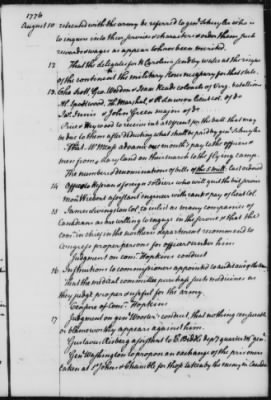 1776
August 10 retreated with the army be referred to genl Schuyler who is
to enquire into their promises & characters & order them such
rewards & wages as appear to have been merited.
12 That the delegates for N Carolina send by water at the risque
of the continent the military stores necessary for that state.
13 Chs Scott, Geo Weedon & Isaac Read colonels of Virg. battalions
Al. Spotswood Tho Marshal, & R Lawson lieut col. of do
Jas Innis & John Green majors of do
Price & Heywood to receive at for the ball that may
be due to them after deducting what shall be paid by genl Schuyler
That Mr Mease advance one month's pay to the officers
& men from Maryland on their march to the flying camp.
The numbers & denominations of bills of this emitt. last ordered
14 a foreign officer who will quit the brit. from
assistant engineer with rank & pay of lieut Col
15 James Livingston Col. to enlist as many companies of
Canadians as are willing to engage in the service & that the
comr in chief in the northern department recommend to
Congress proper persons for officers under him
Judgment on comr Hopkins conduct
16 Instructions to commissioners appointed to audit accts
That the medical committee purchase such medicines as
they judge proper & useful for the army.
Censure of comr Hopkins
17 Judgment on genl Wooster's conduct, that nothing censurable
or blameworthy appears against him.
Gustavus Risberg assistant to C. Biddle depy quarter Mr genl
Genl Washington to propose an exchange of the prisoners
taken at St John's & Chamblé for those taken by the enemy in Canada